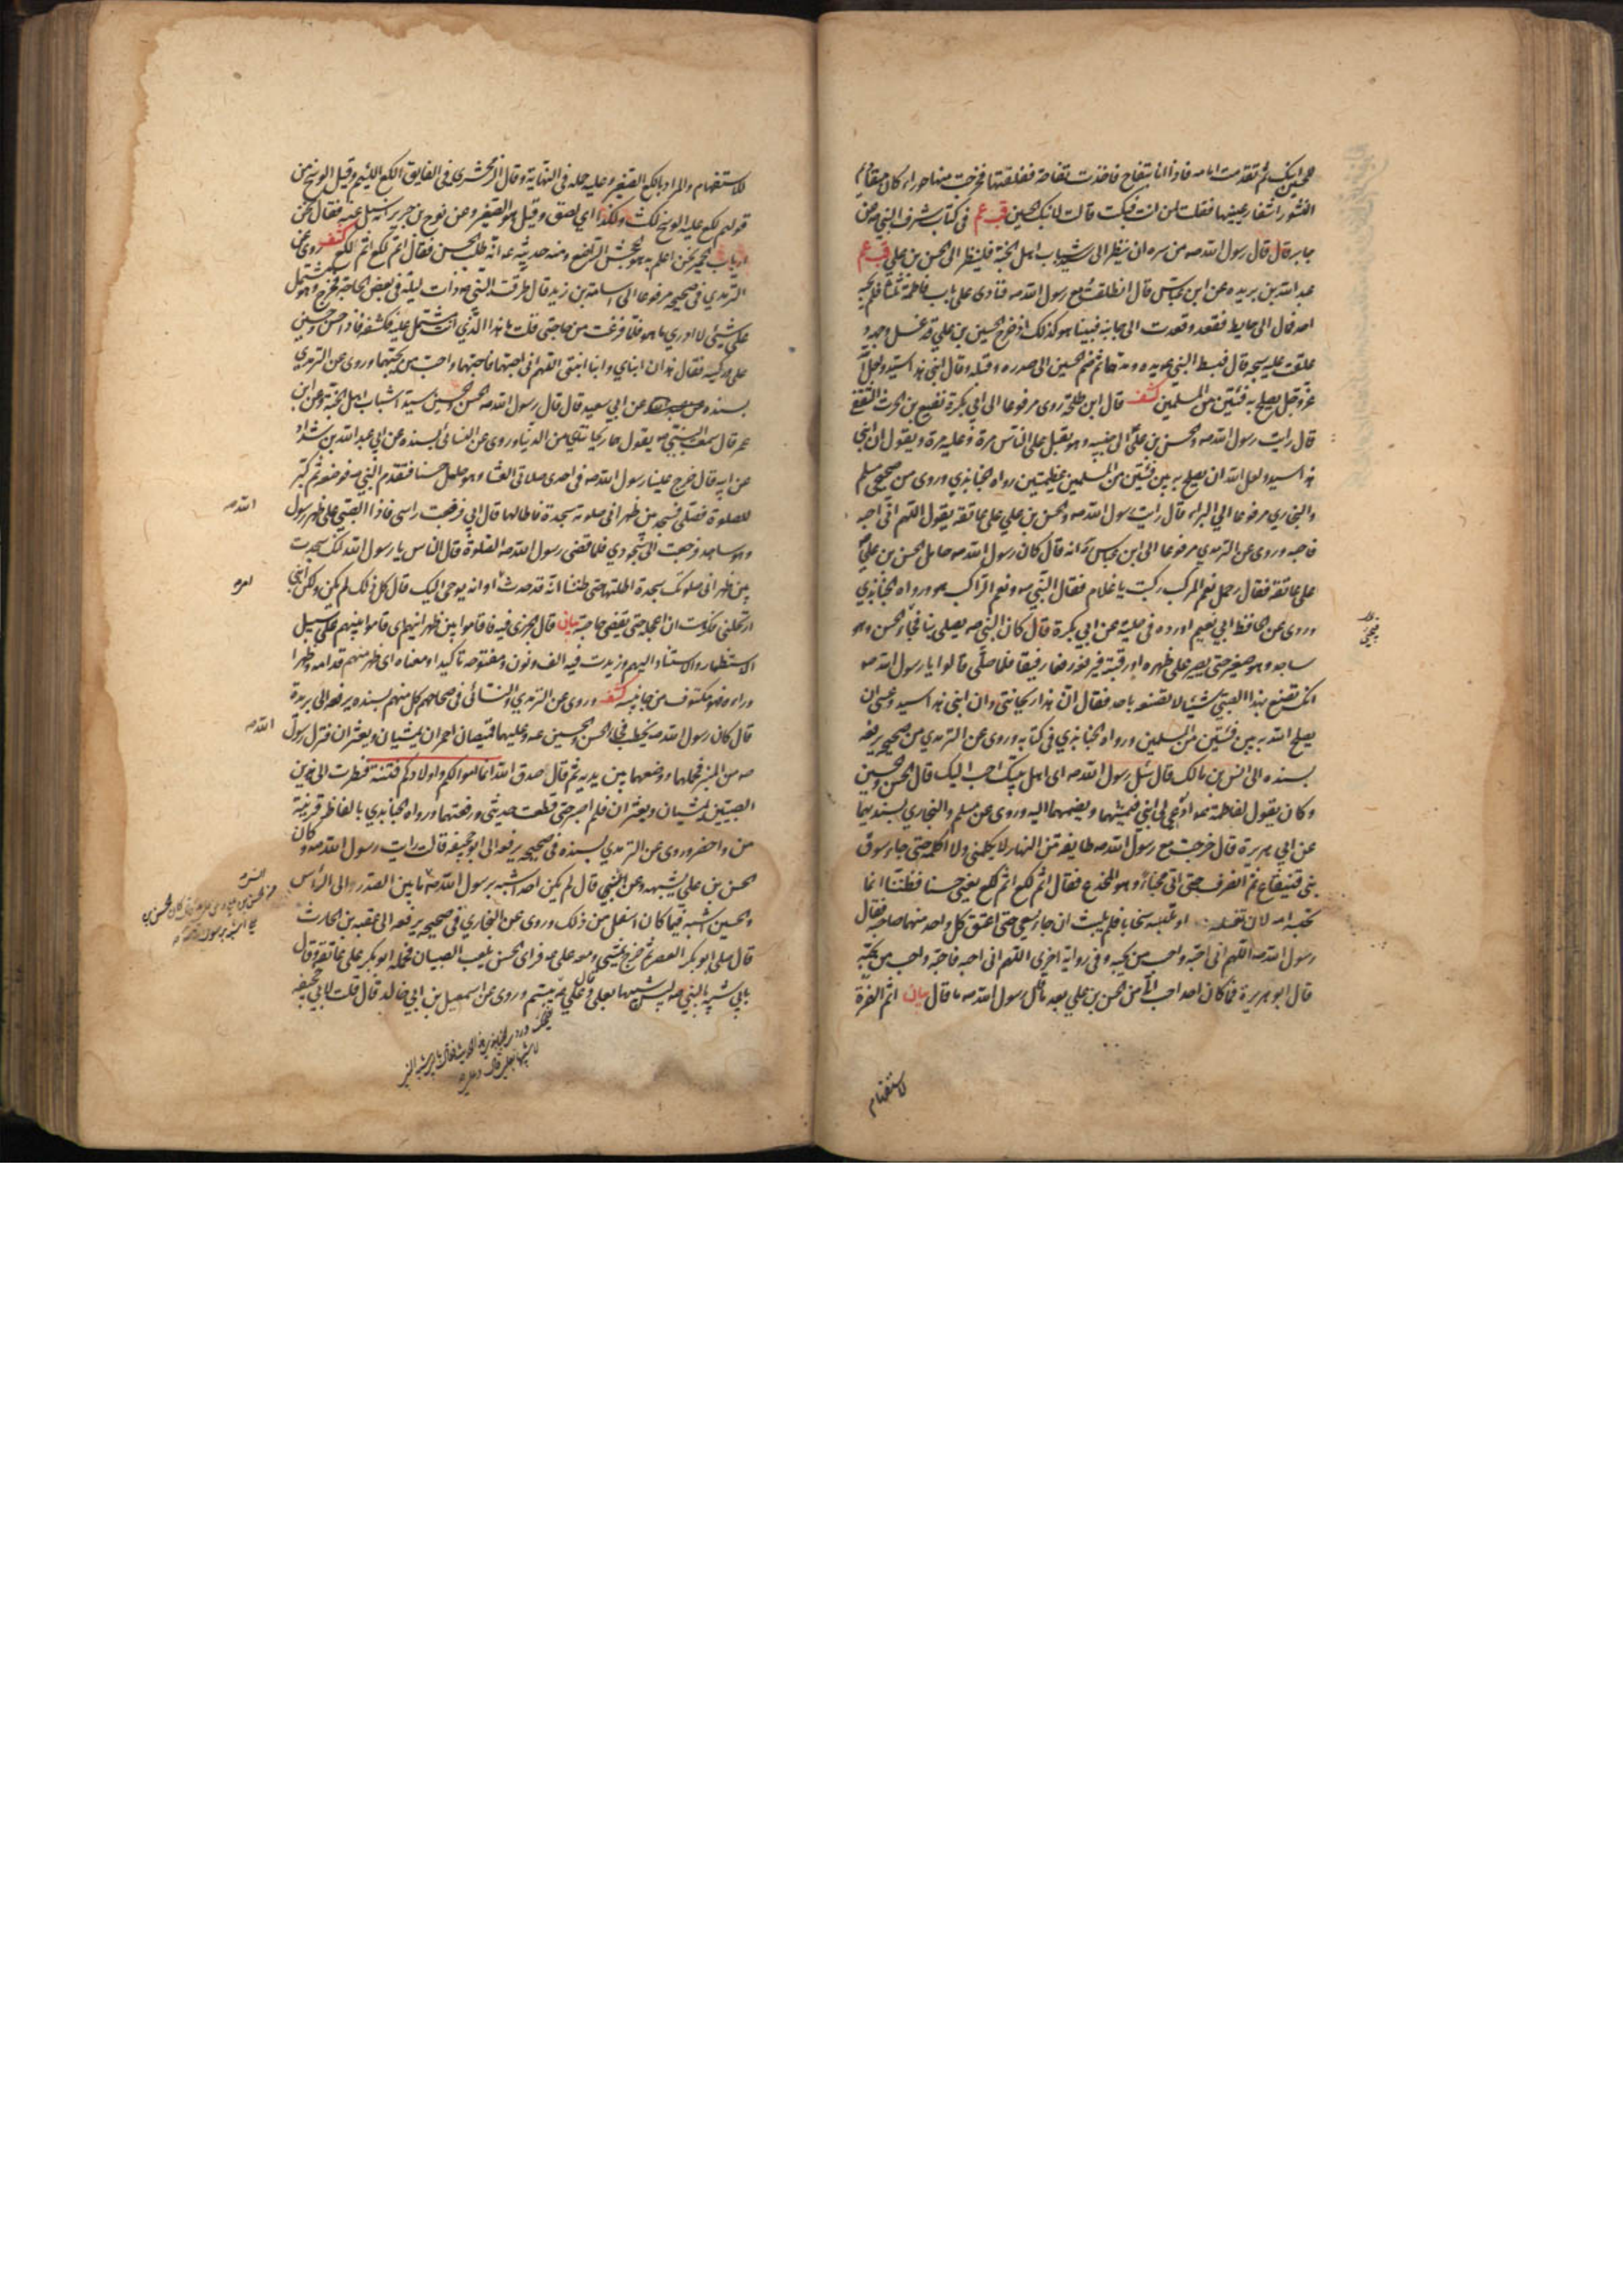 للحسين ابنك ثم تقدمت امامه فاذا انا بتفاح فاخذت تفاحة ففلقتها فخرجت منها حوراء كان مقاديم
النسور اشفار عينيها فقلت لمن انت فبكت قالت لابنك الحسين قب عم في كتاب شرف النبي صه عن
جابر قال قال رسول الله صه من سره ان ينظر الى سيد شباب اهل الجنة فلينظر الى الحسن بن علي قب عم
عبد الله بن بريده عن ابن عباس قال انطلقت مع رسول الله صه فنادى على باب فاطمة ثلثا فلم يجبه
احد فمال الى حايط فقعد وقعدت الى جانبه فبينا هو كذلك اذ خرج الحسن بن علي قد غسل وجهه و
علقت عليه سبحة قال فبسط النبي صه يده ومدها ثم ضم الحسن الى صدره وقبله وقال ابني هذا سيد ولعل الله
عز وجل يصلح به فئتين من المسلمين كشف قال ابن طلحة روى مرفوعا الى ابي بكرة نفيع بن الحرث الثقفي
قال رايت رسول الله صه والحسن بن علي الى جنبه وهو يقبل على الناس مرة وعليه مرة ويقول ان ابني
هذا سيد ولعل الله ان يصلح به بين فئتين من المسلمين عظيمتين رواه الجنابذي وروى من صحيحي مسلم
والبخاري مرفوعا الى البراء قال رايت رسول الله صه والحسن بن علي على عاتقه يقول اللهم اني احبه
فاحبه وروى عن الترمذي مرفوعا الى ابن عباس انه قال كان رسول الله صه حامل الحسن بن علي
على عاتقه فقال رجل نعم المركب ركبت يا غلام فقال النبي صه ونعم الراكب هو ورواه الجنابذي
وروى عن الحافظ ابي نعيم اورده في حليته عن ابي بكرة قال كان النبي صه يصلي بنا فيجيء الحسن وهو
ساجد وهو صغير حتى يصير على ظهره او رقبته فيرفعه رفعا رفيقا فلما صلى قالوا يا رسول الله صه
انك تصنع بهذا الصبي شيئا لا تصنعه باحد فقال ان هذا ريحانتي وان ابني هذا سيد وعسى ان
يصلح الله به بين فئتين من المسلمين ورواه الجنابذي في كتابه وروى عن الترمذي من صحيحه يرفعه
بسنده الى انس بن مالك قال سئل رسول الله صه اي اهل بيتك احب اليك قال الحسن والحسين
وكان يقول لفاطمة ع ادعي لي ابني فيشمهما ويضمهما اليه وروى عن مسلم والبخاري بسنديهما
عن ابي هريرة قال خرجت مع رسول الله صه طايفة من النهار لا يكلمني ولا اكلمه حتى جاء سوق
بني قينقاع ثم انصرف حتى اتى مخباء وهو المخدع فقال اثم لكع اثم لكع يعني حسنا فظننا انما
تحبسه امه لان تغسله او تلبسه سخابا فلم يلبث ان جاء يسعى حتى اعتنق كل واحد منهما صاحبه فقال
رسول الله صه اللهم اني احبه واحب من يحبه وفي رواية اخرى اللهم اني احبه فاحبه واحب من يحبه
قال ابو هريرة فما كان احد احب الي من الحسن بن علي بعد ما قال رسول الله صه ما قال بيان اثم الهمزة
للاستفهام
للاستفهام والمراد بالكع الصغير وعليه حمله في النهاية وقال الزمخشري في الفايق اللكع اللئيم وقيل الوسخ من
قولهم لكع عليه الوسخ لكث ولكد اي لصق وقيل هو الصغير وعن نوح بن جرير انه سئل عنه فقال نحن
ارباب الحمير نحن اعلم به هو الجحش الراضع ومنه حديثه ع انه طلب الحسن فقال اثم لكع اثم لكع كشف وروى عن
الترمذي في صحيحه مرفوعا الى اسامة بن زيد قال طرقت النبي صه ذات ليلة في بعض الحاجة فخرج وهو مشتمل
على شيئ لا ادري ما هو فلما فرغت من حاجتي قلت ما هذا الذي انت مشتمل عليه فكشفه فاذا حسن وحسين
على وركيه فقال هذان ابناي وابنا ابنتي اللهم اني احبهما فاحبهما واحب من يحبهما وروى عن الترمذي
بسنده عن ابي سعيد قال قال رسول الله صه الحسن والحسين سيدا شباب اهل الجنة وعن ابن
عمر قال سمعت النبي صه يقول هما ريحانتاي من الدنيا وروى عن النسائي بسنده عن ابي عبد الله بن شداد
عن ابيه قال خرج علينا رسول الله صه في احدى صلاتي العشاء وهو حامل حسنا فتقدم النبي صه فوضعه ثم كبر
للصلوة فصلى فسجد بين ظهراني صلوته سجدة فاطالها قال ابي فرفعت راسي فاذا الصبي على ظهر رسول
الله صه
وهو ساجد فرجعت الى سجودي فلما قضى رسول الله صه الصلوة قال الناس يا رسول الله انك سجدت
بين ظهراني صلوتك سجدة اطلتها حتى ظننا انه قد حدث او انه يوحى اليك قال كل ذلك لم يكن ولكن ابني
ارتحلني فكرهت ان اعجله حتى يقضي حاجته بيان قال الجزري فيه فاقاموا بين ظهرانيهم اي قاموا بينهم على سبيل
الاستظهار والاستناد اليهم وزيدت فيه الف ونون مفتوحه تاكيدا ومعناه ان ظهرا منهم قدامه وظهرا
وراءه فهو مكنوف من جانبيه كشف وروى عن الترمذي والنسائي في صحاحهم كل منهم بسنده يرفعه الى بريدة
قال كان رسول الله صه يخطب فجاء الحسن والحسين ع وعليهما قميصان احمران يمشيان ويعثران فنزل رسول
الله صه
صه من المنبر فحملهما ووضعهما بين يديه ثم قال صدق الله انما اموالكم واولادكم فتنة فنظرت الى هذين
الصبيين يمشيان ويعثران فلم اصبر حتى قطعت حديثي ورفعتهما ورواه الجنابذي بالفاظ قريبة
من واخصر وروى عن الترمذي بسنده في صحيحه يرفعه الى ابو جحيفة قالت رايت رسول الله صه وكان
الحسن بن علي يشبهه وعن علي قال لم يكن احد اشبه برسول الله صه ما بين الصدر الى الراس
والحسين اشبه فيما كان اسفل من ذلك وروى عن البخاري في صحيحه يرفعه الى عقبه بن الحارث
قال صلى ابو بكر العصر ثم خرج يمشي ومعه علي ع فراى الحسن يلعب الصبيان فحمله ابو بكر على عاتقه وقال
بابي شبيه بالنبي صه ليس شبيها بعلي وعلي ع يبتسم وروى عن اسمعيل بن ابي خالد قال قلت لابي جحيفه